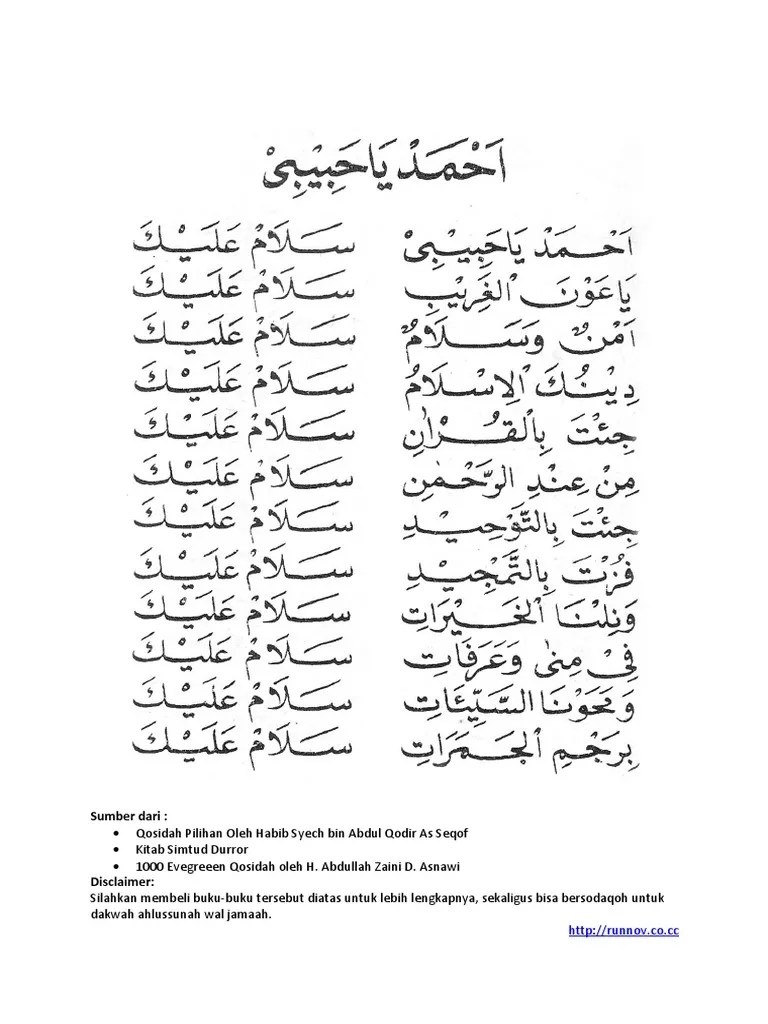 اَحْمَدْ يَا حَبِيْبِيْ
اَحْمَدْ يَا حَبِيْبِيْ سَلَامْ عَلَيْكَ
يَا عَوْنَ الْغَرِيْبِ سَلَامْ عَلَيْكَ
اَمْنٌ وَسَلَامٌ سَلَامْ عَلَيْكَ
دِيْنُكَ الْاِسْلَامُ سَلَامْ عَلَيْكَ
جِئْتَ بِالْقُرْاٰنِ سَلَامْ عَلَيْكَ
مِنْ عِنْدِ الرَّحْمٰنِ سَلَامْ عَلَيْكَ
جِئْتَ بِالتَّوْحِيْدِ سَلَامْ عَلَيْكَ
فُزْتَ بِالتَّمْجِيْدِ سَلَامْ عَلَيْكَ
وَنِلْنَا الْخَيْرَاتِ سَلَامْ عَلَيْكَ
فِيْ مِنٰى وَعَرَفَاتِ سَلَامْ عَلَيْكَ
وَمَحَوْنَا السَّيِّئَاتِ سَلَامْ عَلَيْكَ
بِرَجْمِ الْجَمَرَاتِ سَلَامْ عَلَيْكَ
Sumber dari :
• Qosidah Pilihan Oleh Habib Syech bin Abdul Qodir As Seqof
• Kitab Simtud Durror
• 1000 Evegreeen Qosidah oleh H. Abdullah Zaini D. Asnawi
Disclaimer:
Silahkan membeli buku-buku tersebut diatas untuk lebih lengkapnya, sekaligus bisa bersodaqoh untuk
dakwah ahlussunah wal jamaah.
http://runnov.co.cc